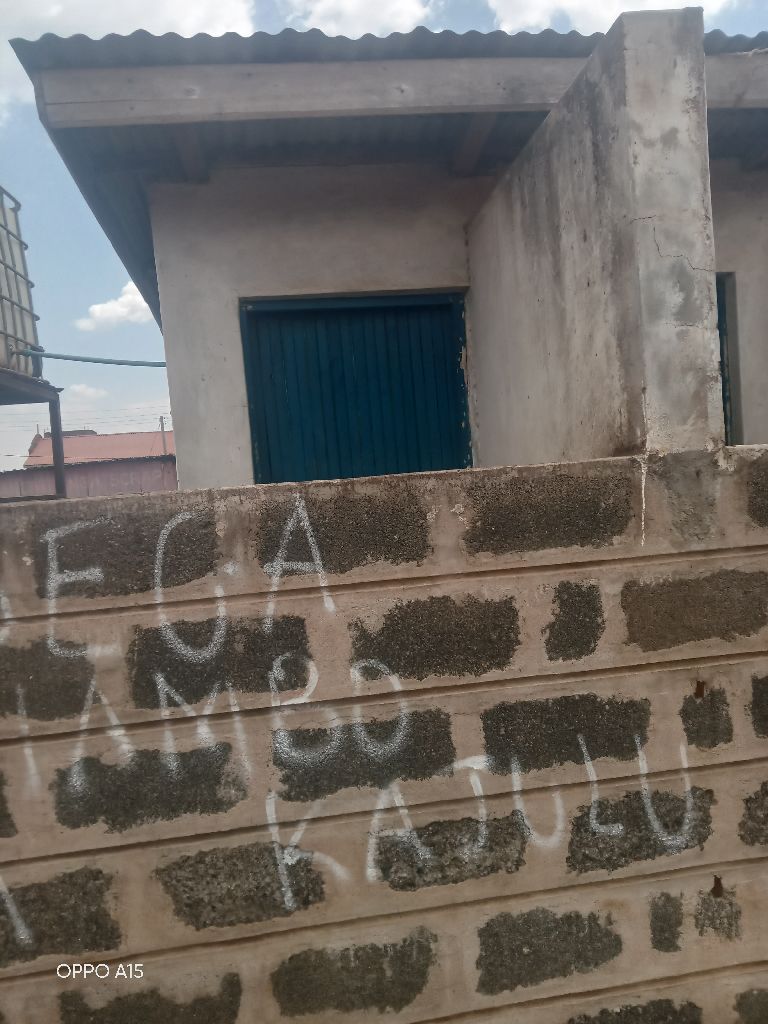 EGA
AMBO
KAJULU
OPPO A15